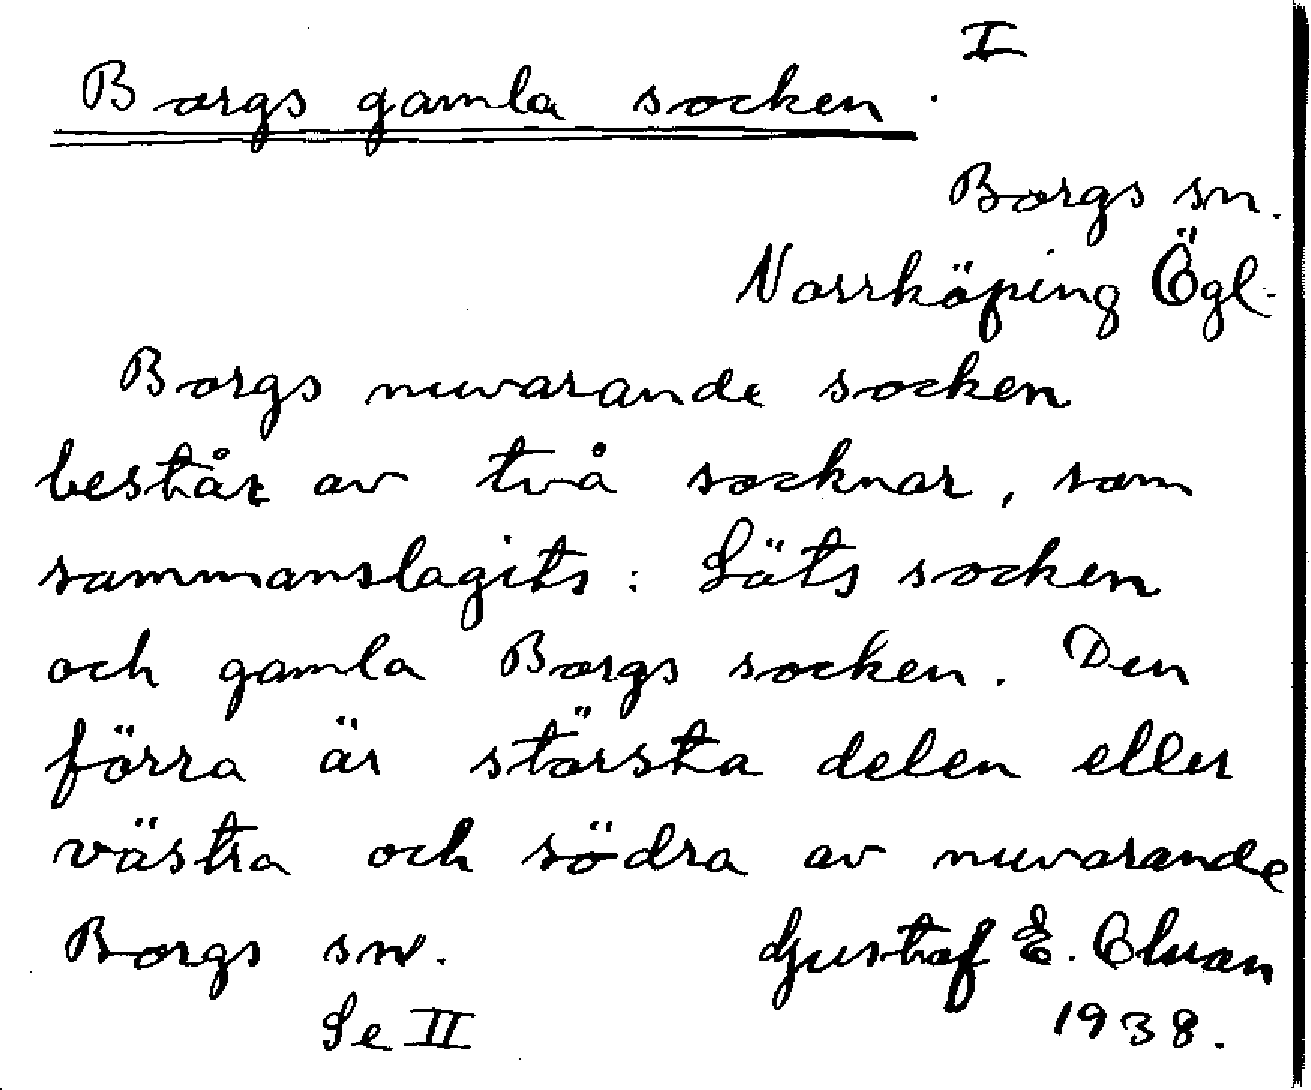 I
Borgs gamla socken.
Borgs sn.
Norrköping Ögl.
Borgs nuvarande socken
består av två socknar, som
sammanslagits: Löts socken
och gamla Borgs socken. Den
förra är största delen eller
västra och södra av nuvarande
Borgs sn.
Gustaf E.
Se II
1938.